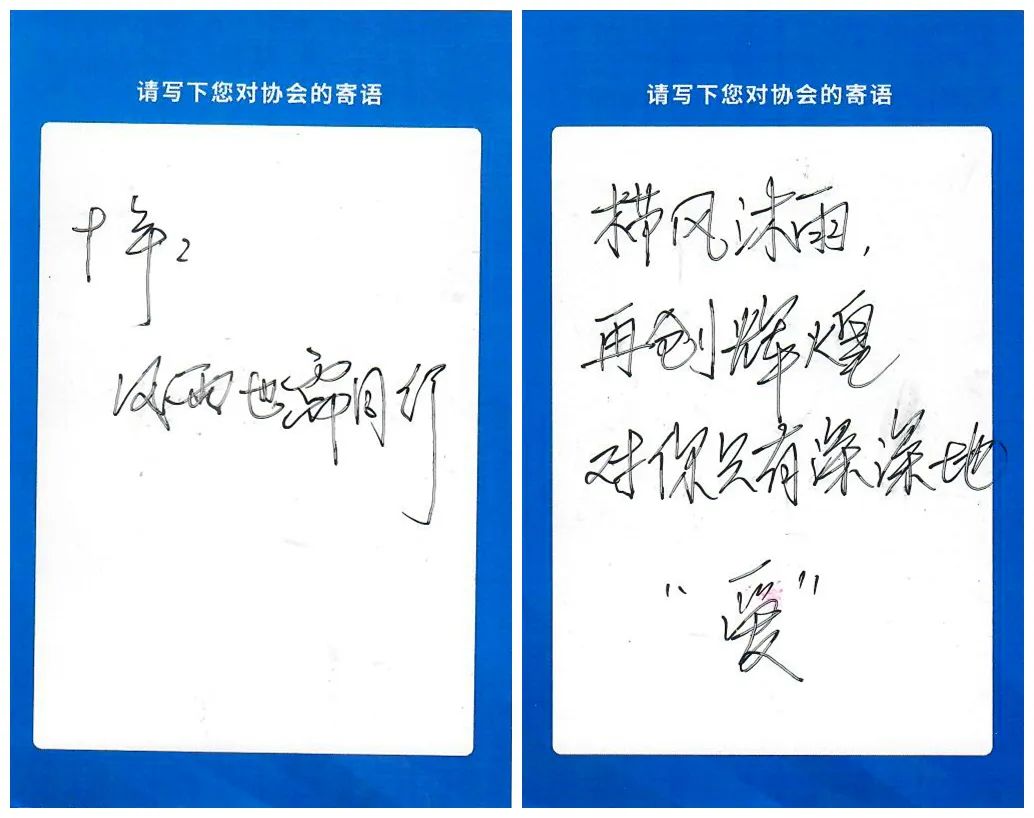 请写下您对协会的寄语
十年:
雨也需同行
请写下您对协会的寄语
风沐雨,
再创辉煌
对你只有深深地
“爱”